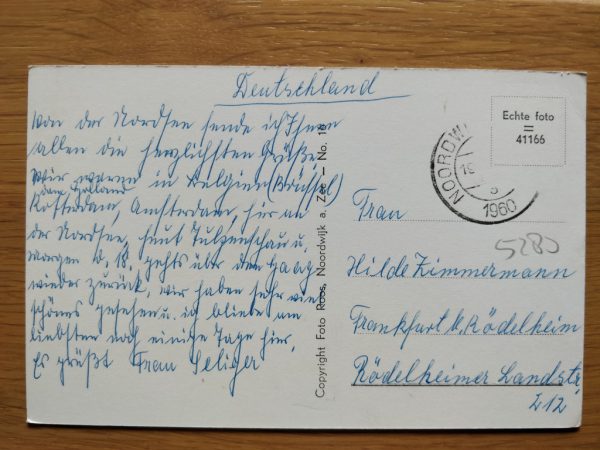 Deutschland
Von der Nordsee sende ich Ihnen
allen die herzlichsten Grüße
Wir waren in Belgien (Brüssel)
dann Holland
Rotterdam, Amsterdam, hier an
der Nordsee, heut Tulpenschau u.
morgen gehts über den Haag
wieder zurück, wir haben sehr viel
schönes gesehen u. ich bliebe am
liebsten noch einige Tage hier.
Es grüßt Frau Seliger
Copyright Foto Roos, Noordwijk a. Zee — No. 18
Echte foto
=
41166
NOORDWI
1960
5280
Frau
Hilde Zimmermann
Frankfurt M. Rödelheim
Rödelheimer Landstr.
212